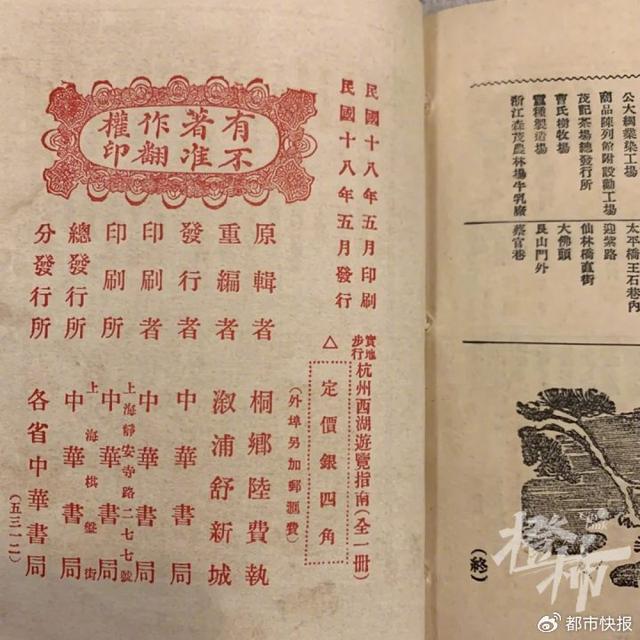 公大綢業染工場 太平橋王石巷內
商品陳列館附設勸工場 迎紫路
茂記茶場總發行所 仙林橋直街
曹氏樹牧場 大佛頭
蠶種製造場 艮山門外
浙江森茂農林場牛乳廠 蔡官巷
(終)
民國十八年五月印刷
民國十八年五月發行
有著作權
不准翻印
實地步行杭州西湖遊覽指南(全一冊)
△定價銀四角
(外埠另加郵滙費)
原輯者 桐鄉陸費執
重編者 漵浦舒新城
發行者 中華書局
印刷者 中華書局
印刷所 上海靜安寺路二七七號 中華書局
總發行所 上海棋盤街 中華書局
分發行所 各省中華書局
(五三一二)
橙柿
@都市快报